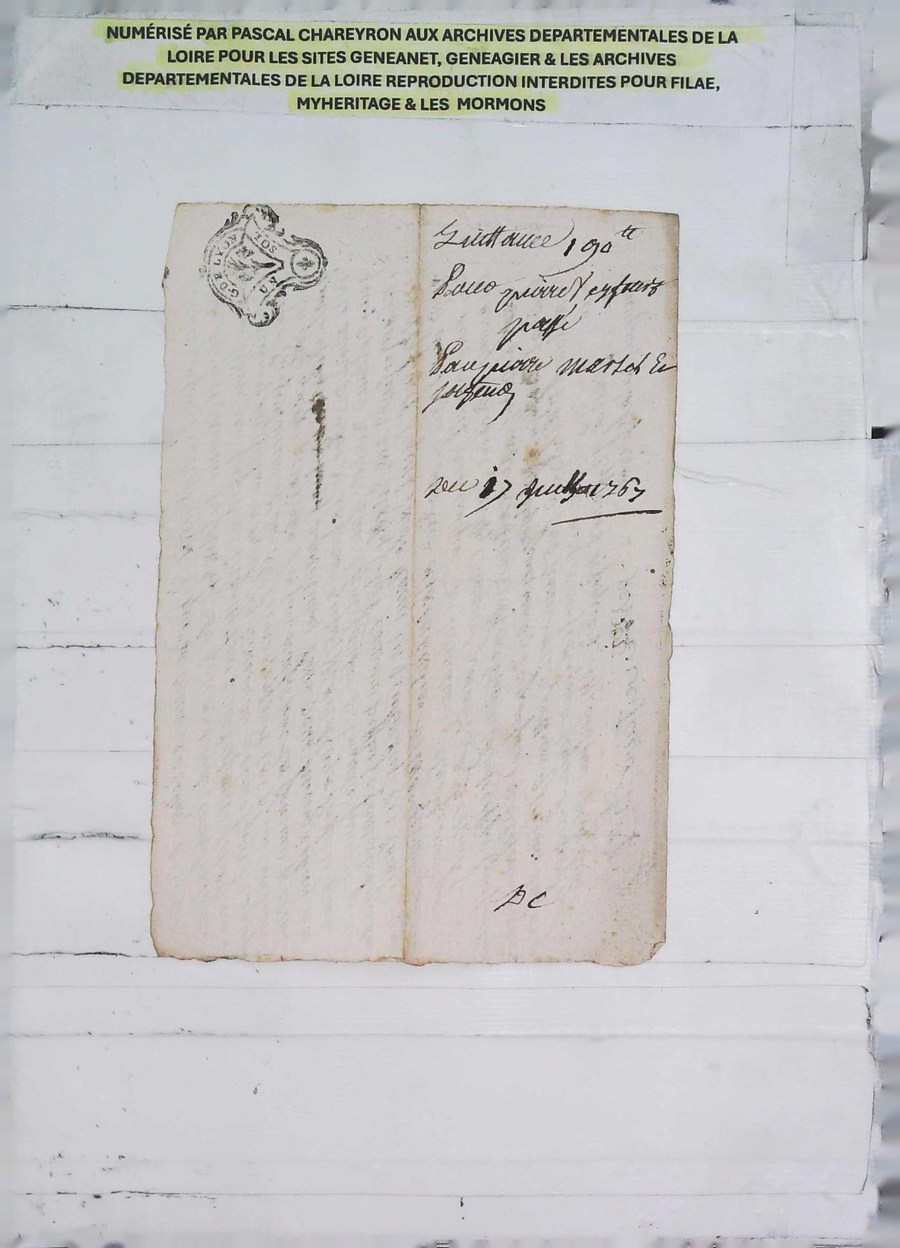 NUMÉRISÉ PAR PASCAL CHAREYRON AUX ARCHIVES DEPARTEMENTALES DE LA
LOIRE POUR LES SITES GENEANET, GENEAGIER & LES ARCHIVES
DEPARTEMENTALES DE LA LOIRE REPRODUCTION INTERDITES POUR FILAE,
MYHERITAGE & LES MORMONS
G. DE LYON
UN SOL
Quittance 190 tt
Pour pierre
passé
Par pierre &
Du 17 1767